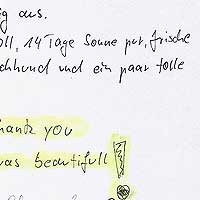 ig aus.
oll, 14 Tage Sonne pur, frische
chhund und ein paar tolle
hank you
was beautifull!